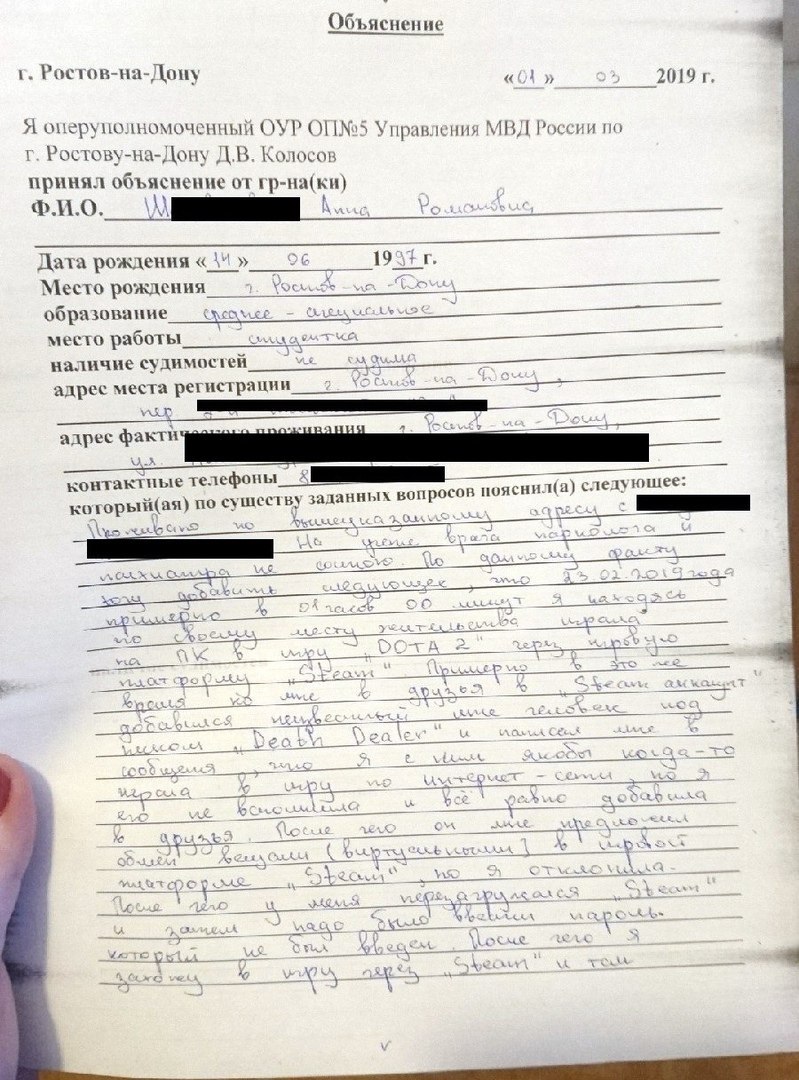 Объяснение
г. Ростов-на-Дону «01» 03 2019 г.
Я оперуполномоченный ОУР ОП№5 Управления МВД России по
г. Ростову-на-Дону Д.В. Колосов
принял объяснение от гр-на(ки)
Ф.И.О. Ш Анна Романовна
Дата рождения «14» 06 1997 г.
Место рождения г. Ростов-на-Дону
образование среднее - специальное
место работы студентка
наличие судимостей не судима
адрес места регистрации г. Ростов-на-Дону,
пер
адрес фактического проживания г. Ростов-на-Дону,
ул.
контактные телефоны 8
который(ая) по существу заданных вопросов пояснил(а) следующее:
Проживаю по вышеуказанному адресу с
На учете врача нарколога и
психиатра не состою. По данному факту
хочу добавить следующее, что 23.02.2019 года
примерно в 01 часов 00 минут я находясь
по своему месту жительства играла
на ПК в игру „DOTA 2" через игровую
платформу „Steam". Примерно в это же
время ко мне в друзья в „Steam аккаунт"
добавился неизвестный мне человек под
ником „Death Dealer" и написал мне в
сообщения, что я с ним якобы когда-то
играла в игру по интернет-сети, но я
его не вспомнила и всё равно добавила
в друзья. После чего он мне предложил
обмен вещами (виртуальными) в игровой
платформе „Steam", но я отклонила.
После чего у меня перезагружался „Steam"
и затем надо было ввести пароль.
который не был введен. После чего я
захожу в игру через „Steam" и там
v